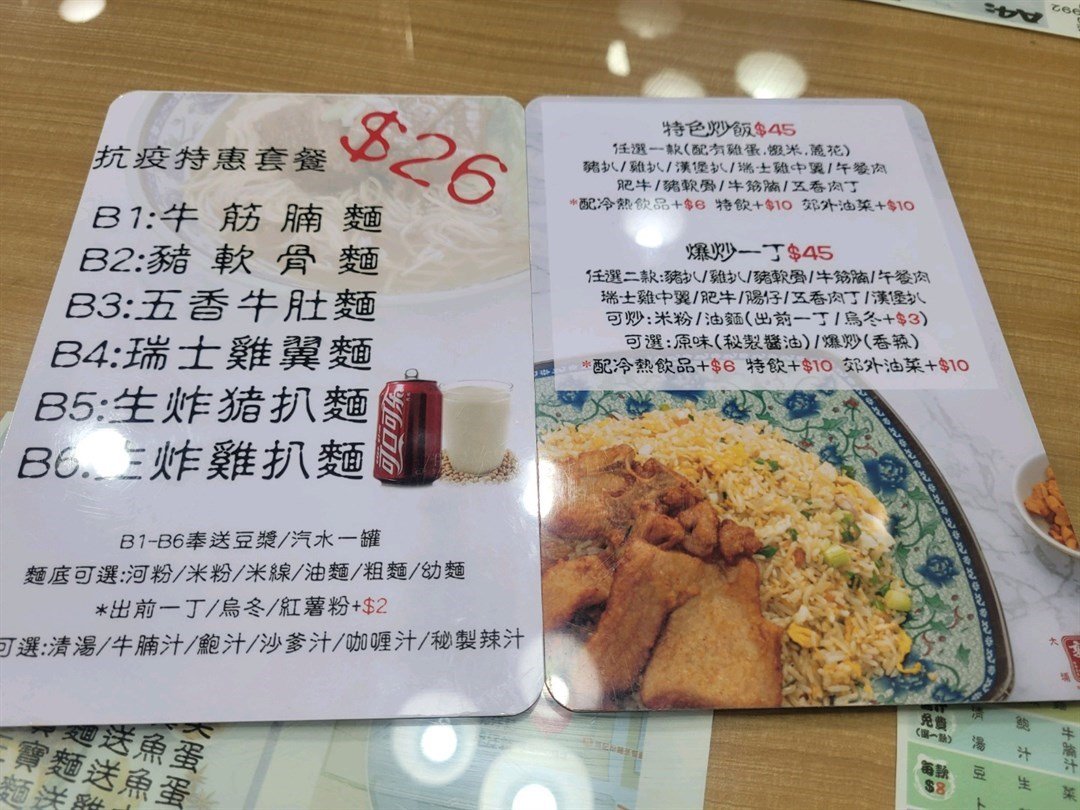 抗疫特惠套餐 $26
B1:牛筋腩麵
B2:豬軟骨麵
B3:五香牛肚麵
B4:瑞士雞翼麵
B5:生炸豬扒麵
B6:生炸雞扒麵
可口可乐
B1-B6奉送豆漿/汽水一罐
麵底可選:河粉/米粉/米線/油麵/粗麵/幼麵
*出前一丁/烏冬/紅薯粉+$2
可選:清湯/牛腩汁/鮑汁/沙爹汁/咖喱汁/秘製辣汁
特色炒飯$45
任選一款(配有雞蛋.蝦米.蔥花)
豬扒/雞扒/漢堡扒/瑞士雞中翼/午餐肉
肥牛/豬軟骨/牛筋腩/五香肉丁
*配冷熱飲品+$6 特飲+$10 郊外油菜+$10
爆炒一丁$45
任選二款:豬扒/雞扒/豬軟骨/牛筋腩/午餐肉
瑞士雞中翼/肥牛/腸仔/五香肉丁/漢堡扒
可炒:米粉/油麵(出前一丁/烏冬+$3)
可選:原味(秘製醬油)/爆炒(香辣)
*配冷熱飲品+$6 特飲+$10 郊外油菜+$10
大埔
麵送魚蛋
寶麵送魚蛋
麵送雞
免費
(選一款)
清湯
鮑汁
牛腩汁
每款
$8
992